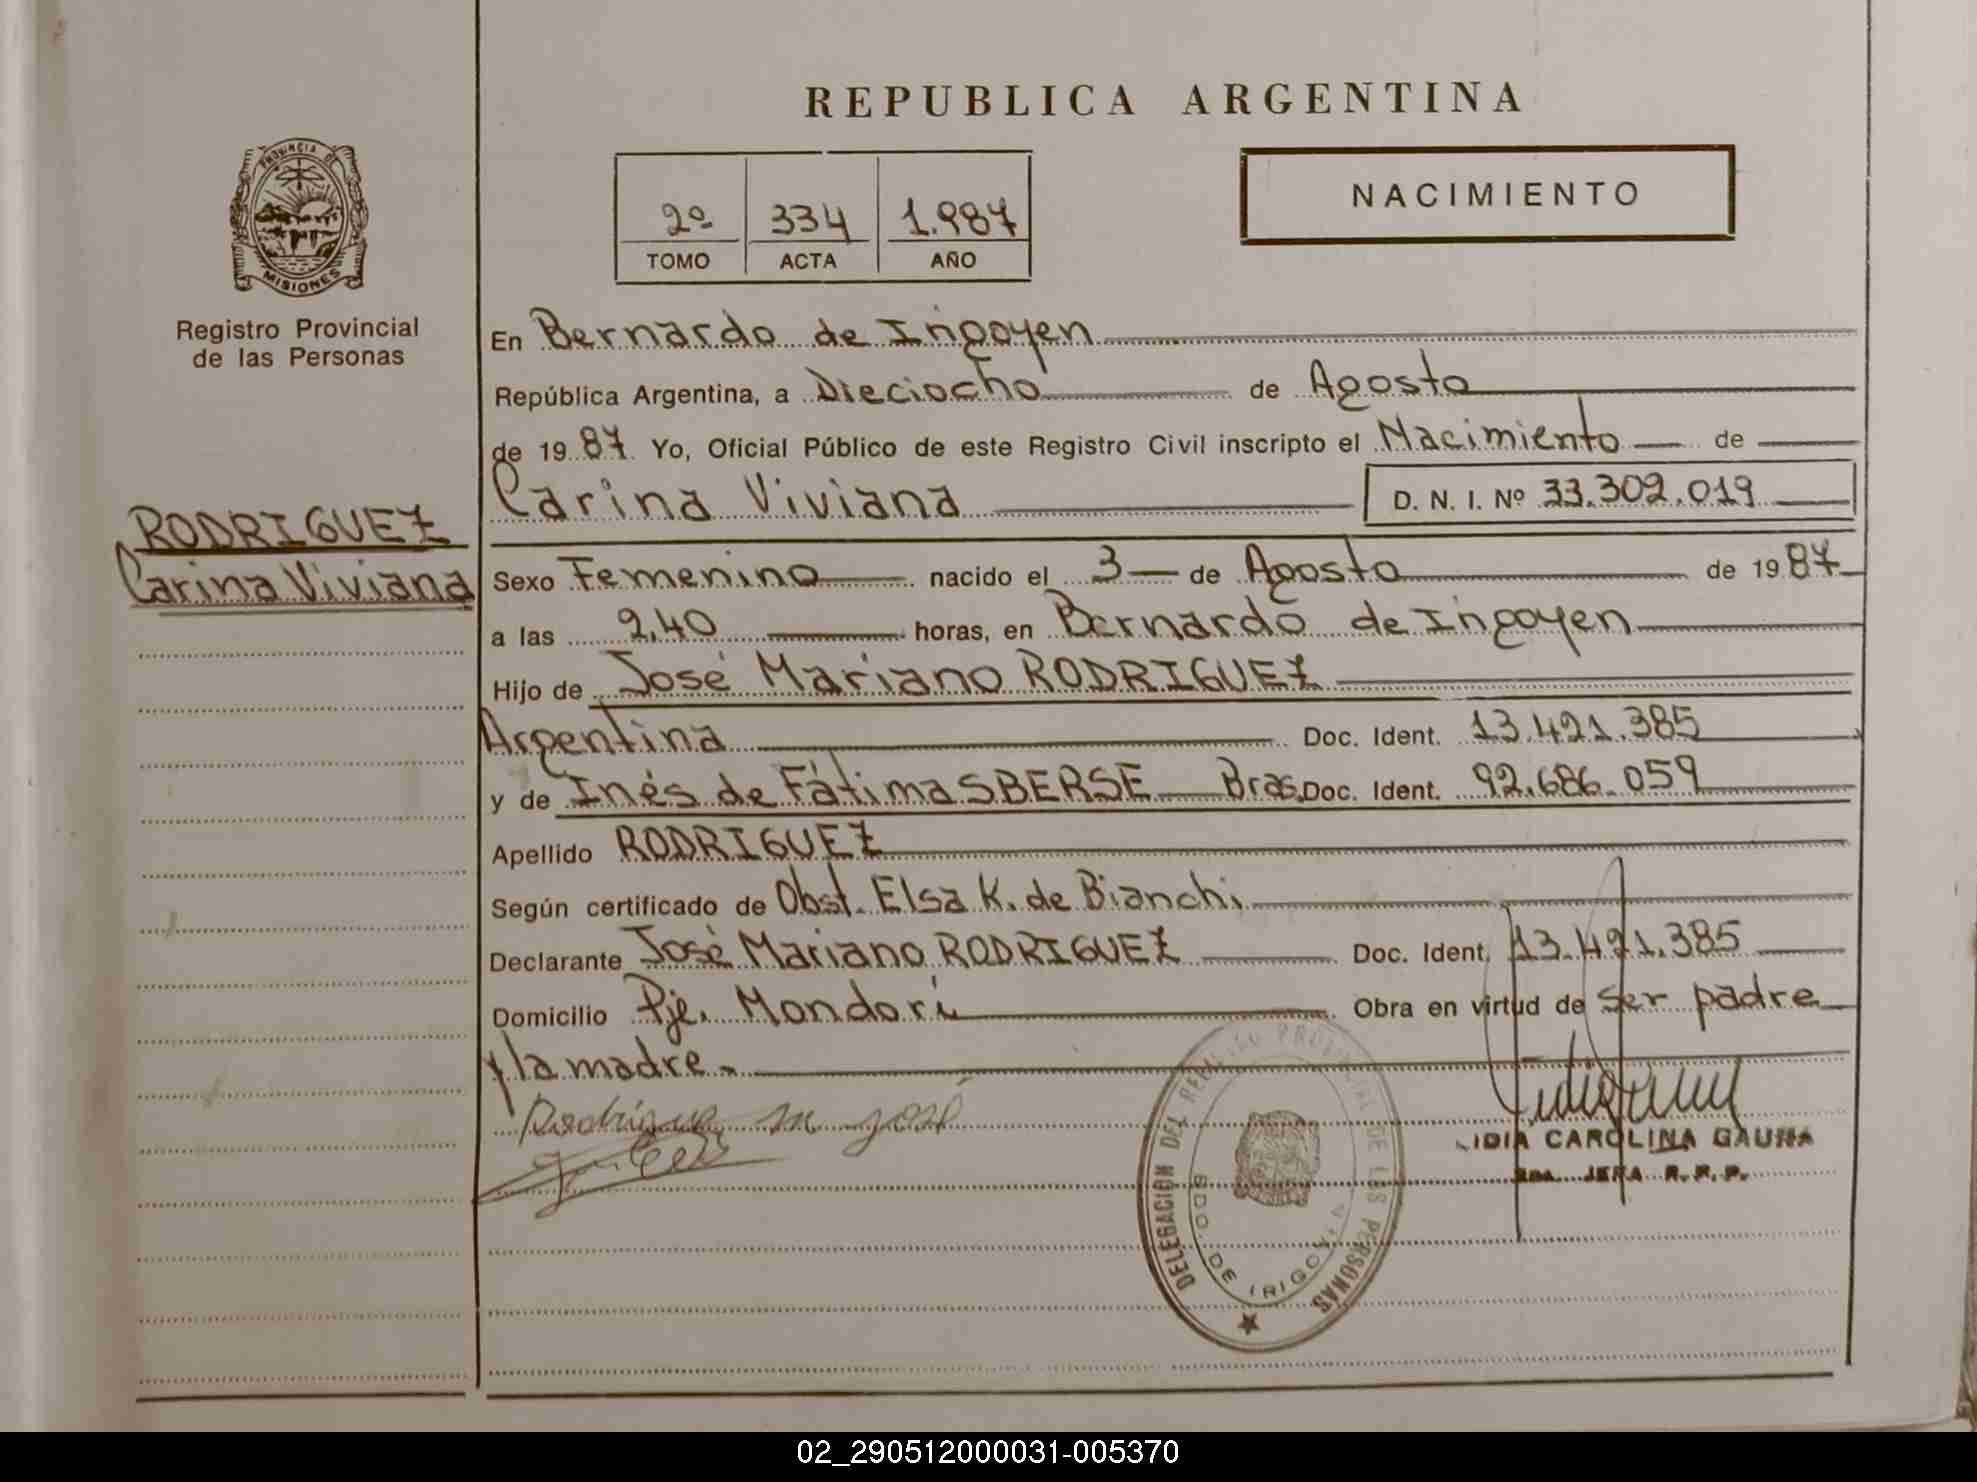 REPUBLICA ARGENTINA
PROVINCIA DE
MISIONES
Registro Provincial
de las Personas
2º 334 1.987
TOMO ACTA AÑO
NACIMIENTO
RODRIGUEZ
Carina Viviana
En Bernardo de Irigoyen
República Argentina, a Dieciocho de Agosto
de 1987 Yo, Oficial Público de este Registro Civil inscripto el Nacimiento de
Carina Viviana D. N. I. Nº 33.302.019
Sexo Femenino nacido el 3 de Agosto de 1987
a las 2,40 horas, en Bernardo de Irigoyen
Hijo de José Mariano RODRIGUEZ
Argentina Doc. Ident. 13.421.385
y de Inés de Fátima SBERSE Bras. Doc. Ident. 92.686.059
Apellido RODRIGUEZ
Según certificado de Obst. Elsa K. de Bianchi
Declarante José Mariano RODRIGUEZ Doc. Ident. 13.421.385
Domicilio Pje. Mondorí Obra en virtud de ser padre
y la madre.
Rodriguez M José
LIDIA CAROLINA GAUNA
2da. JEFA R. P. P.
DELEGACION DEL REGISTRO PROVINCIAL DE LAS PERSONAS
BDO. DE IRIGOYEN
02_290512000031-005370